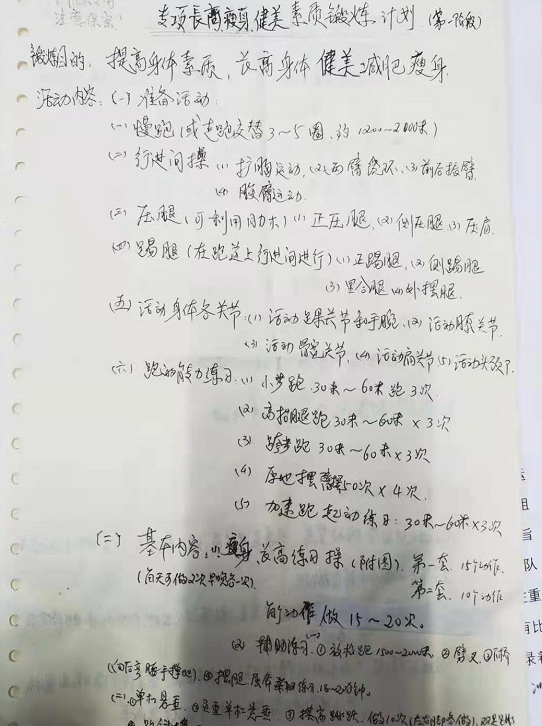 注意保密
专项長高瘦身健美素质锻炼计划(第一阶段)
锻炼目的:提高身体素质,长高身体健美减肥瘦身
活动内容:(一)准备活动:
(一)慢跑(或走跑交替3~5圈,约1200~2000米)
(二)行进间操(1)扩胸运动,(2)两臂绕环,(3)前后振臂
(4)腹背运动.
(三)压腿(可利用肋木)(1)正压腿,(2)侧压腿(3)压肩.
(四)踢腿(在跑道上行进间进行)(1)正踢腿,(2)侧踢腿
(3)里合腿(4)外摆腿.
(五)活动身体各关节:(1)活动踝关节和手腕,(2)活动膝关节.
(3)活动髋关节,(4)活动肩关节(5)活动头颈
(六)跑的能力练习:(1)小步跑30米~60米跑3次
(2)高抬腿跑30米~60米×3次
(3)跨步跑30米~60米×3次
(4)原地摆臂50次×4次.
(5)加速跑起动练习:30米~60米×3次
(二)基本内容:(1)瘦身长高练习操(附图).第一套.15个动作.
(每天做2次早晚各一次)
第二套.10个动作
每动作做15~20次。
(2)辅助练习①放松跑1500~2000米
队
重